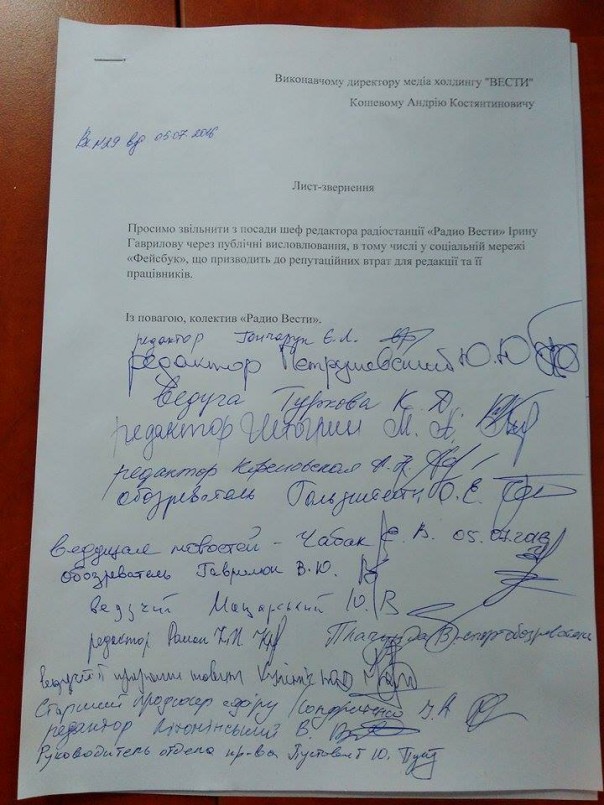 Виконавчому директору медіа холдингу "ВЕСТИ"
Кошевому Андрію Костянтиновичу
Вх №29 від 05.07.2016
Лист-звернення
Просимо звільнити з посади шеф редактора радіостанції «Радио Вести» Ірину
Гаврилову через публічні висловлювання, в тому числі у соціальній мережі
«Фейсбук», що призводить до репутаційних втрат для редакції та її
працівників.
Із повагою, колектив «Радио Вести».
редактор Гончарук Є.Л.
редактор Петрушевский Ю.Ю
Ведуча Туркова К. Д.
редактор М. А.
редактор А.
обозреватель О.Е.
Ведущая новостей - Чабак Е. В. 05.07.2016
обозреватель Гаврилюк В.Ю.
ведучий Мацарський Ю. В
редактор Плачинда В спортобозреватель
Старший продюсер ефіру
редактор В.
Руководитель отдела Пустовит Ю.